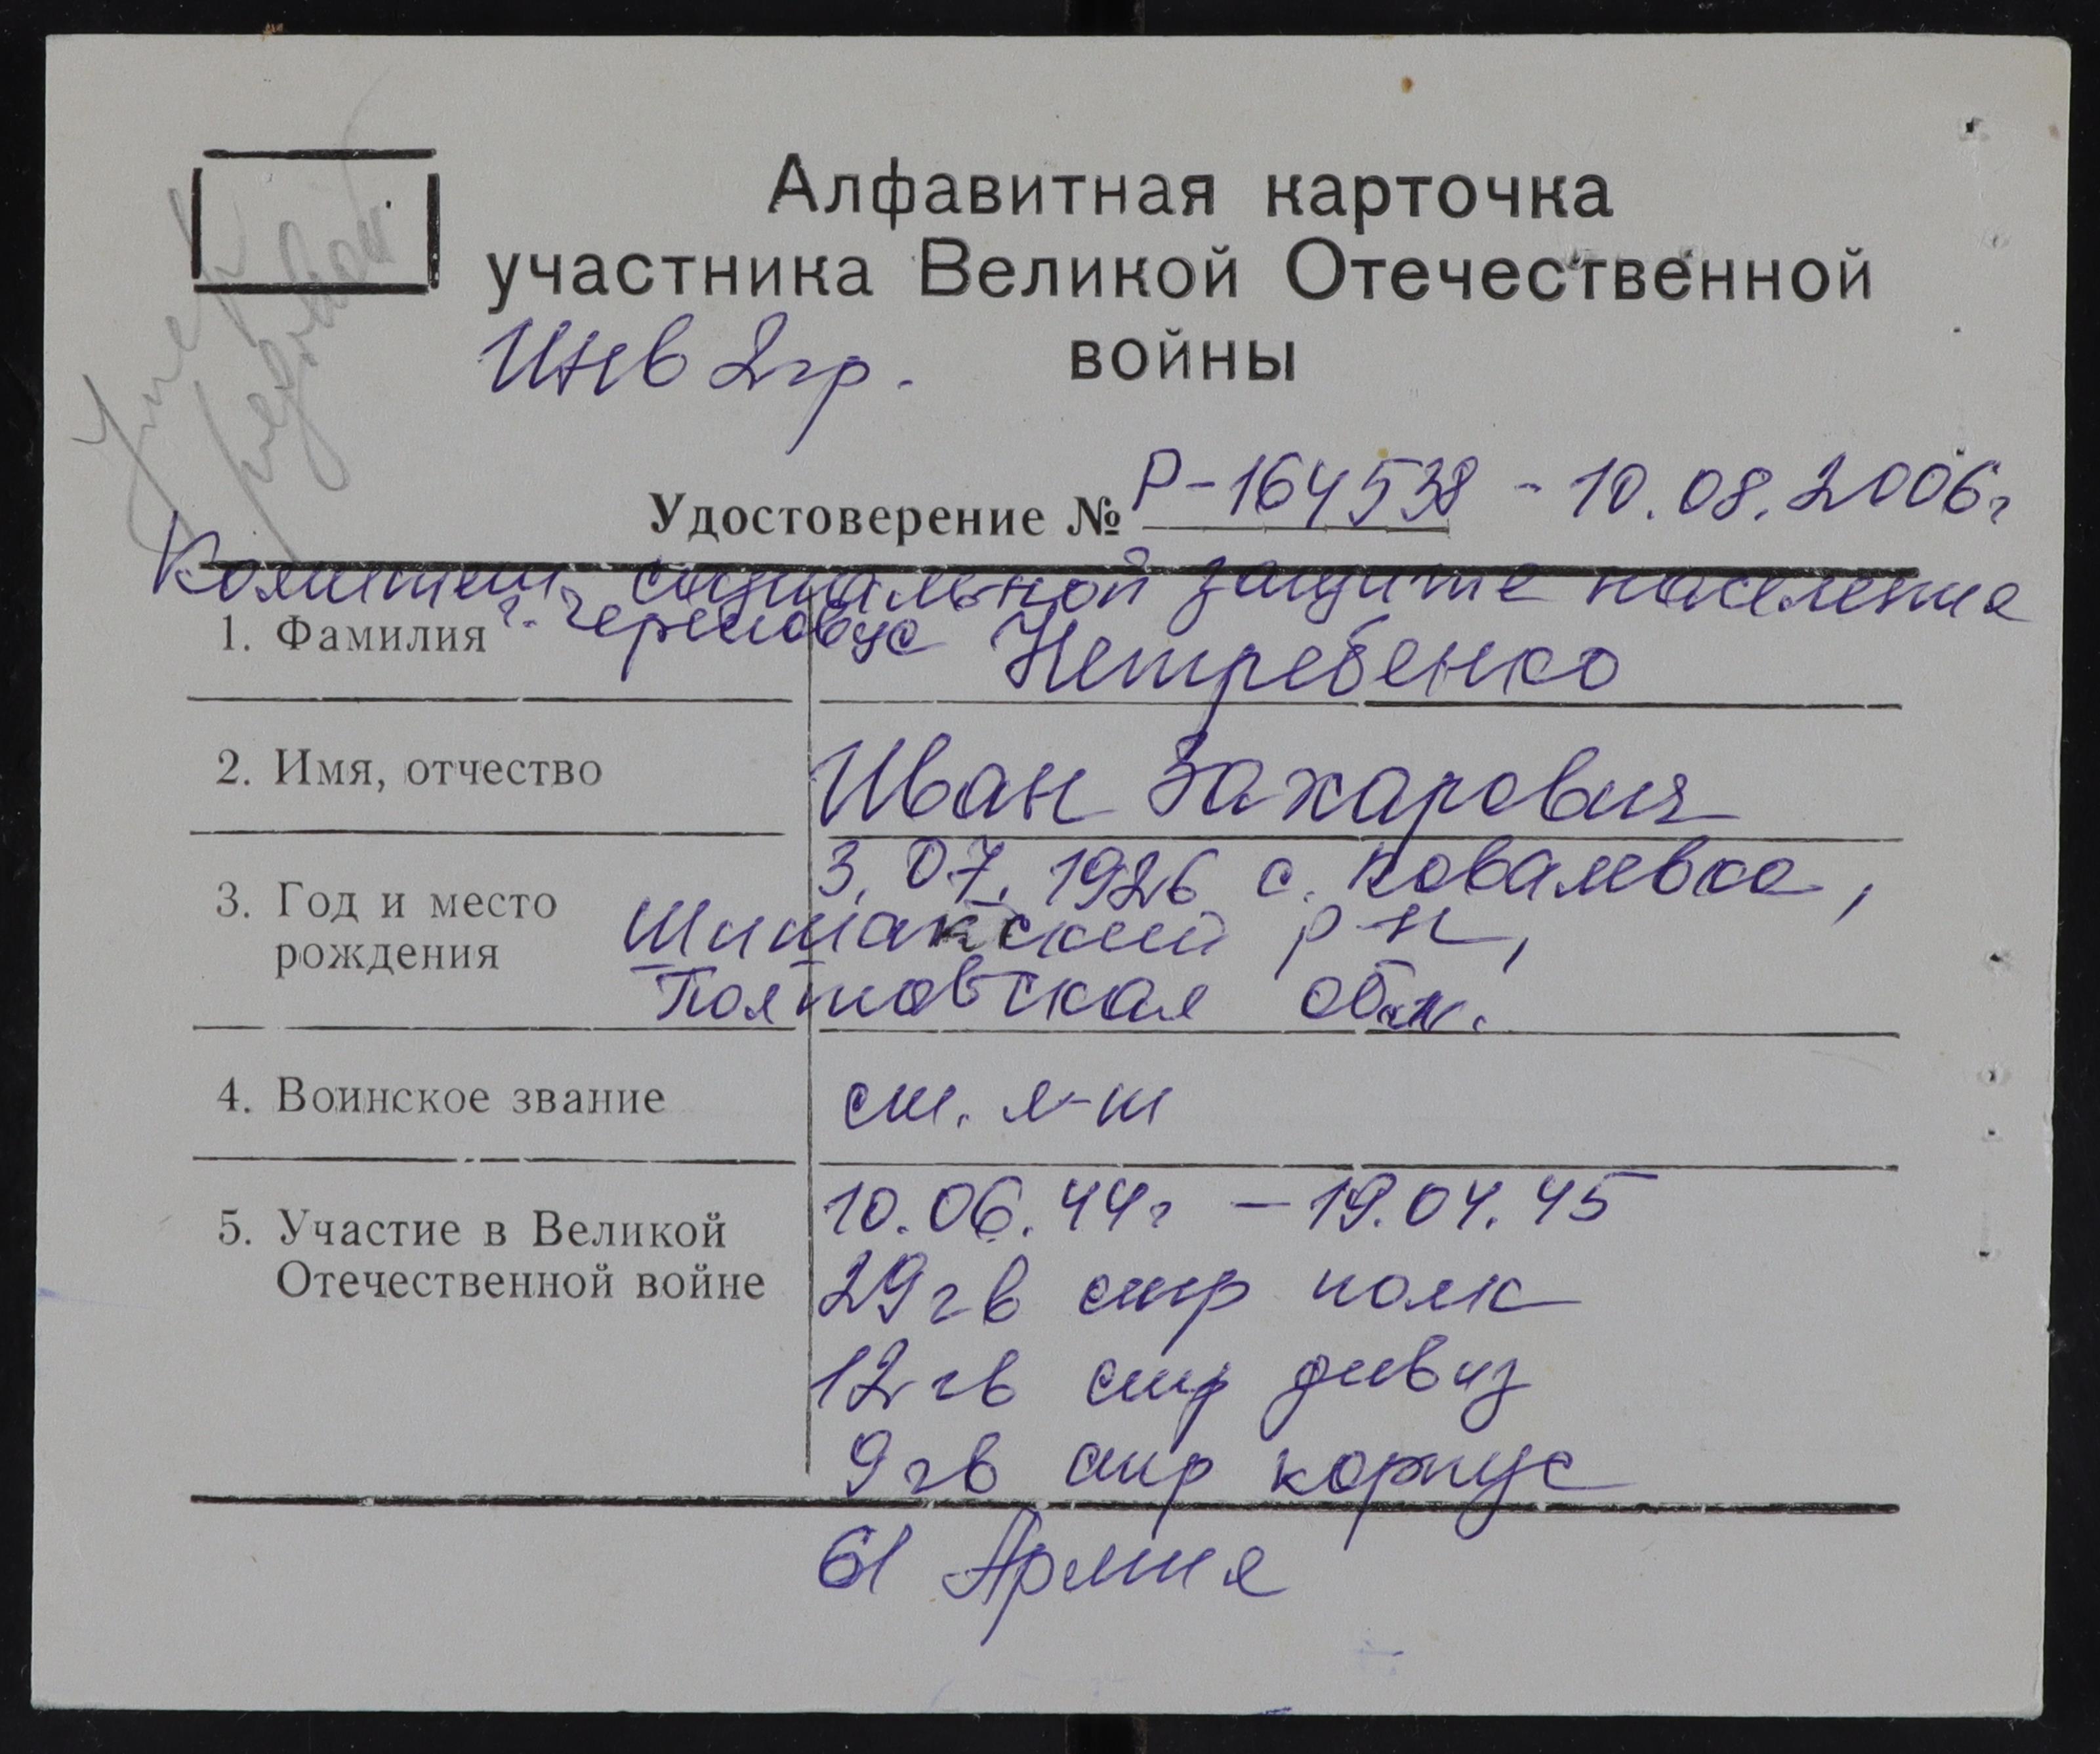 Алфавитная карточка
участника Великой Отечественной
войны
Инв 2гр.
Удостоверение № Р-164538 - 10.08.2006г
Комитет социальной защите населения
г. Череповца
1. Фамилия Нетребенко
2. Имя, отчество Иван Захарович
3. Год и место
рождения
3.07.1926 с. Ковалевка,
Шишакский р-н,
Полтовская обл.
4. Воинское звание ст. л-т
5. Участие в Великой
Отечественной войне
10.06.44г - 19.04.45
29 гв стр полк
12 гв стр дивиз
9 гв стр корпус
61 Армия